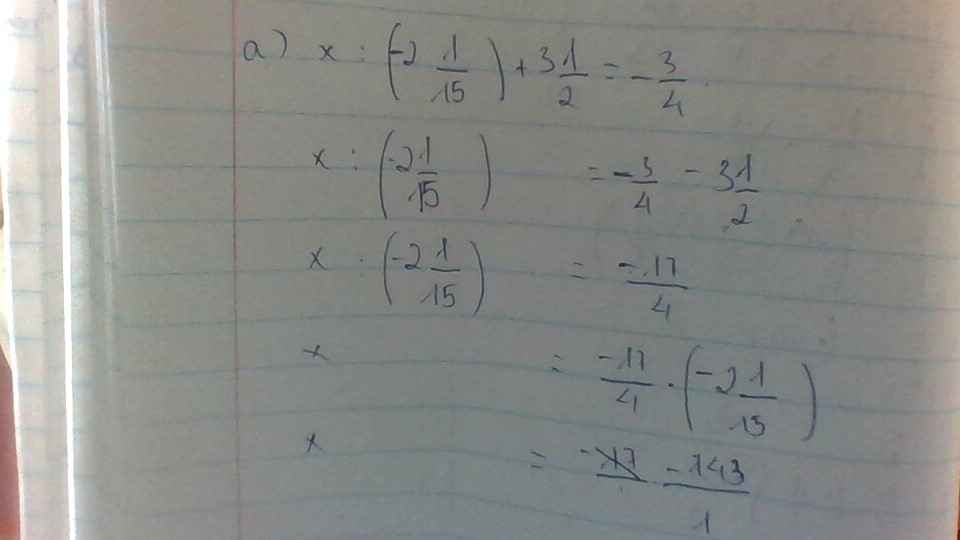 a) x : (-2 1/15) + 3 1/2 = - 3/4
x : (-2 1/15) = - 3/4 - 3 1/2
x : (-2 1/15) = -17/4
x = -17/4 · (-2 1/15)
x = -17 -143/1